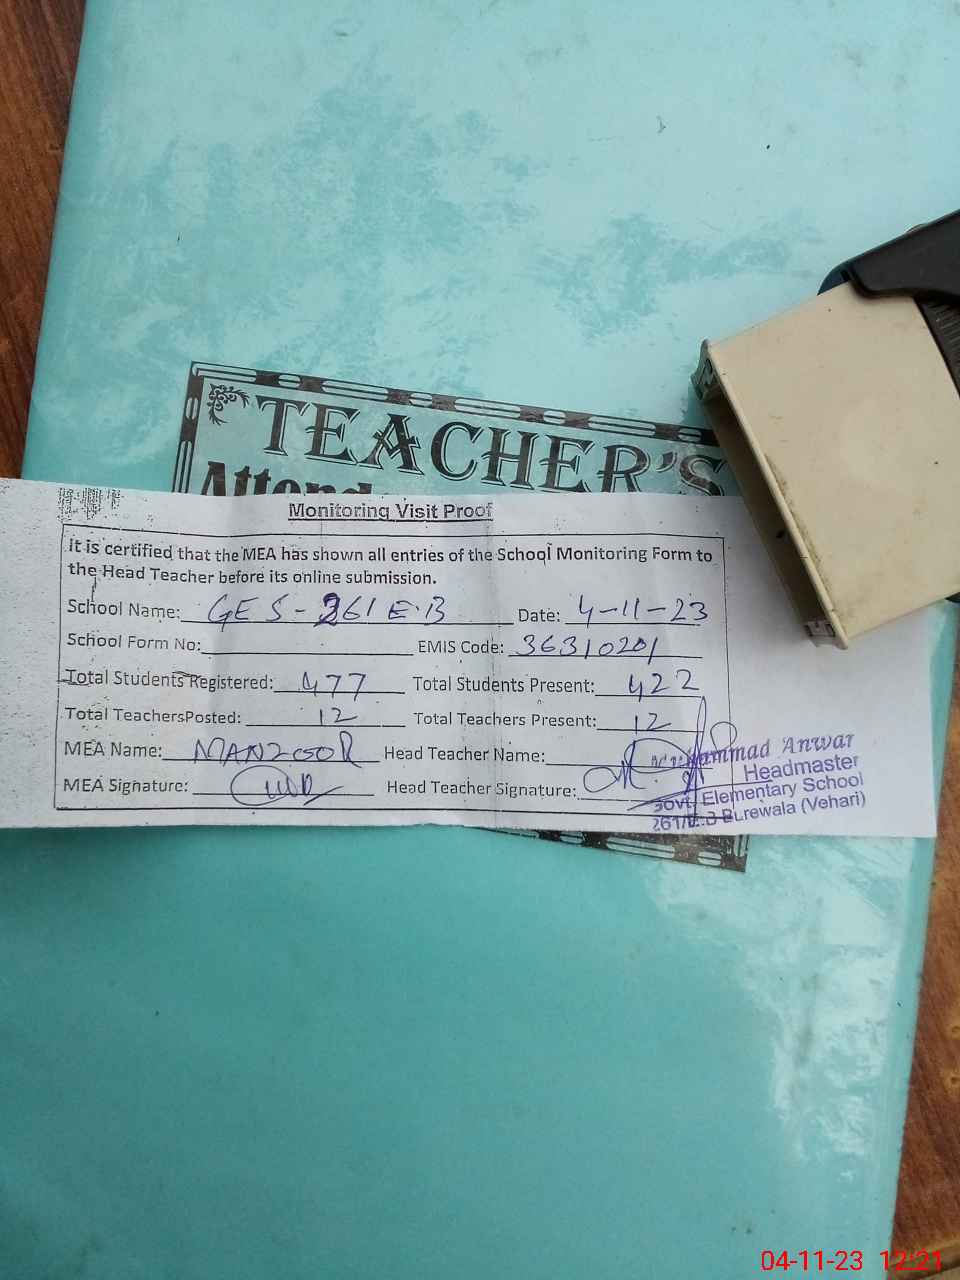 TEACHER'S
Attend
Monitoring Visit Proof
It is certified that the MEA has shown all entries of the School Monitoring Form to
the Head Teacher before its online submission.
School Name: GES-261 E.B Date: 4-11-23
School Form No: EMIS Code: 36310201
Total Students Registered: 477 Total Students Present: 422
Total TeachersPosted: 12 Total Teachers Present: 12
MEA Name: MANZOOR Head Teacher Name:
MEA Signature: Head Teacher Signature:
Muhammad Anwar
Headmaster
Govt. Elementary School
261/E.B Burewala (Vehari)
04-11-23 12:21